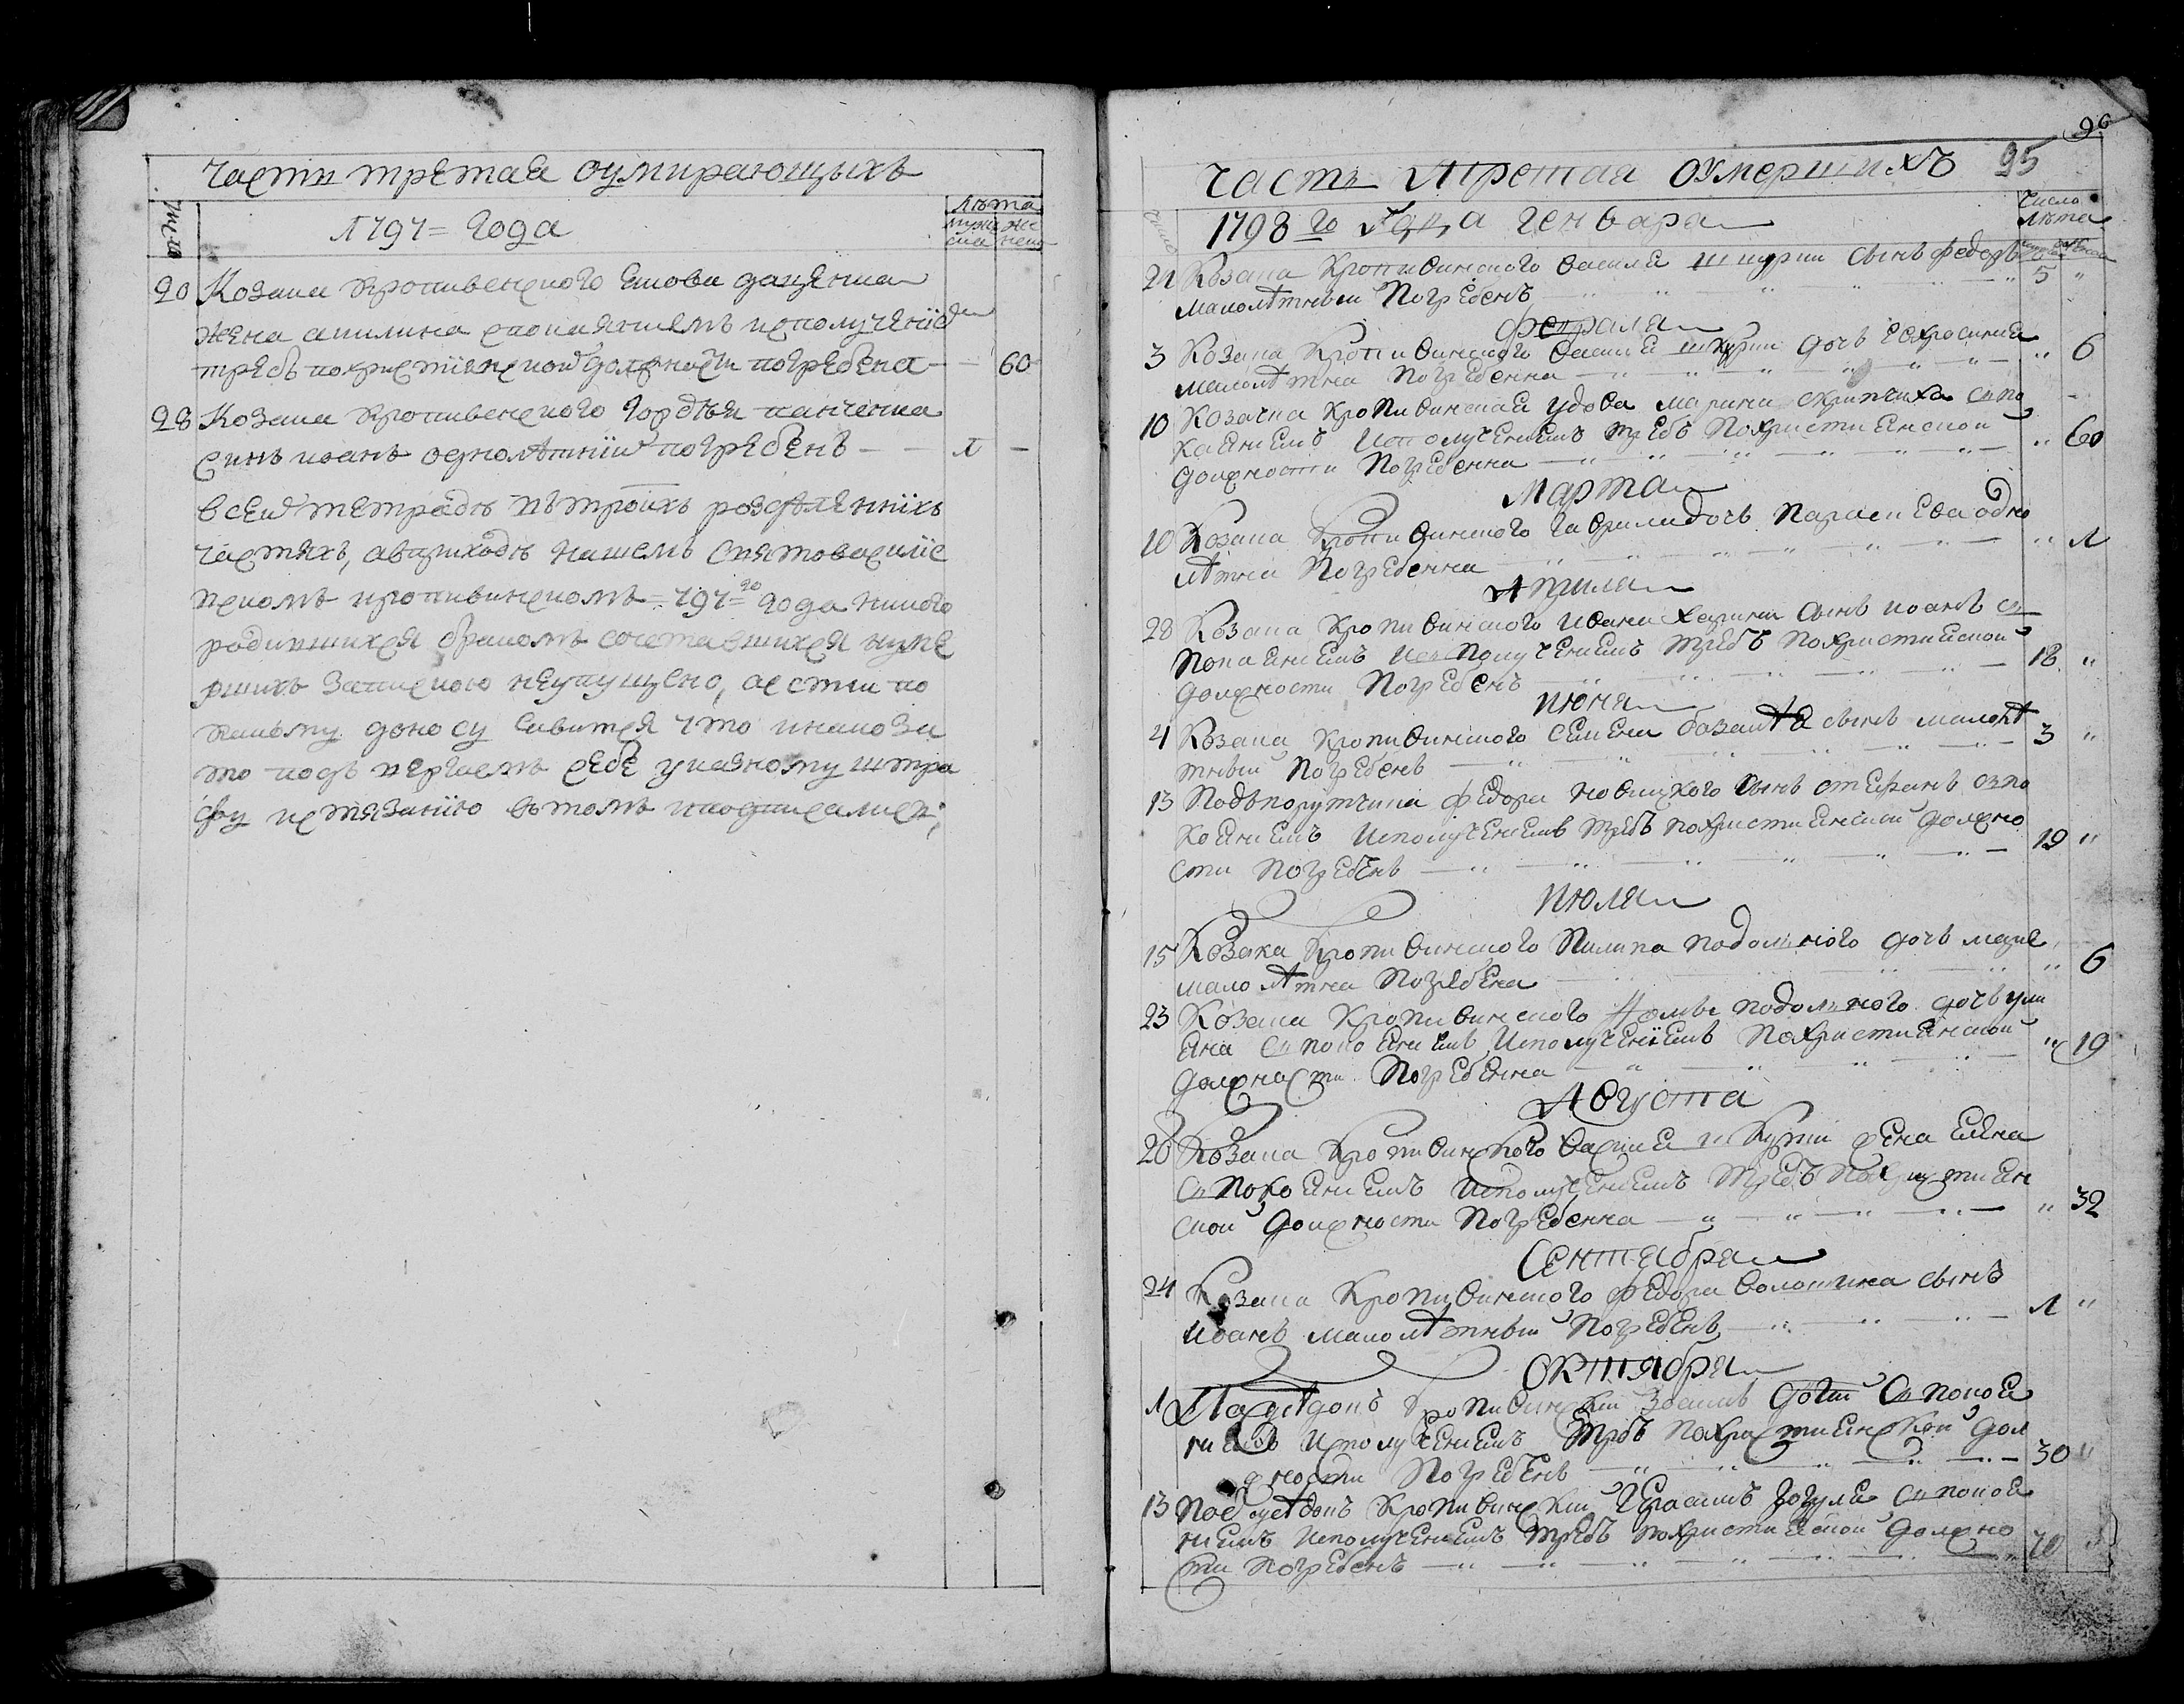 Части третая оумирающыхъ
Число
Лѣта
мужеска женска
1797= Года
20 Козака Кропивенского Якова даценка
жена акилина споkаяниемъ исполученiем
требъ похристiянской должности погребена — — 60
28 Козака Кропивенского Гордѣя панченка
синъ иоанъ однолѣтнiи погребенъ — — 1 —
всей тетрадѣ въ троихъ роздѣленнихъ
частяхъ, авприходѣ нашемъ Святовасилiе
вскомъ кропивинскомъ= 797=го года никого
родившихся бракомъ сочетавшихся иуме
ршихъ запискою неупущено, аестли по
какому доносу явится что инако за
то подъ вергаемъ себе указному штра
фу истязанiю вътомъ иподписалися;
96
95
Часть Третая Оумершихъ
Число
Лѣта
число
1798го Года генвара
21 Козака Кропивинского Василя шкурки сынъ федоръ
малолѣтный Погребенъ — 5 "
февраля
3 Козака Кропивинского Василя шкурки дочь Евхросиния
малолѣтна Погребенна — " 6
10 Козачка Кропивинская удова марина скрипчиха спо
каяниемъ Исполучениемъ требъ Похристиянской
должности Погребенна — " 60
Марта
10 Козака Кропивинского Гаврила дочь Параскева одно
лѣтна Погребенна — " 1
Априля
28 Козака Кропивинского Ивана сынъ иоанъ съ
Покаяниемъ Исъ Получениемъ требъ Похристиянской
должности Погребенъ — 18 "
Июня
4 Козака Кропивинского Семена сынъ малолѣ
тный Погребенъ — 3 "
13 Подъпорутчика федора Новицкого сынъ стефанъ спо
каяниемъ Исполучениемъ требъ похристиянской должно
сти Погребенъ — 19 "
Июля
15 Козака Кропивинского Пилипа подолного дочь
малолѣтна Погребена — " 6
23 Козака Кропивинского подолного дочь ули
яна съ покаяниемъ Исполучениемъ Похристиянской
должности Погребенна — " 19
Августа
20 Козака Кропивинского Василя шкурки жена
съ Покаяниемъ Исполучениемъ требъ Похристиян
ской должности Погребенна — " 32
Сентября
24 Козака Кропивинского федора Волошина сынъ
Иоанъ малолѣтный Погребенъ — 1 "
Октября
1 Кропивинский съ покая
ниемъ Исполучениемъ требъ Похристиянской дол
жности Погребенъ — 30 "
13 Кропивинский Герасимъ съ покая
ниемъ Исполучениемъ требъ похристиянской должно
сти Погребенъ — 70 "